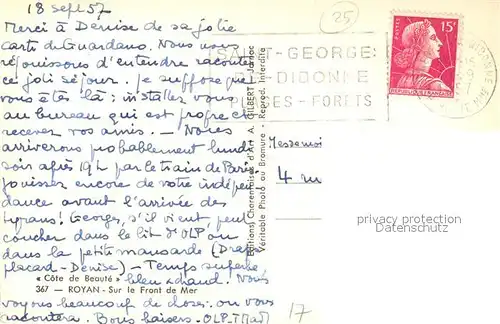 18 sept 57
Merci à Denise de sa jolie
carte de Guardano. Nous nous
réjouissons d'entendre raconter
ce joli séjour. Je suppose que
vous êtes là : installez vous
au bureau qui est propre et
recevez vos amis. — Nous
arriverons probablement lundi
soir après 19h par le train de Paris.
Jouissez encore de votre indépen
dance avant l'arrivée des
tyrans! Georges, s'il vient peut
coucher dans le lit d'OLP ou
dans la petite mansarde (Draps
placard - Denise) — Temps superbe,
bleu & chaud. Nous
« Côte de Beauté »
367 — ROYAN - Sur le Front de Mer
voyons beaucoup de choses. on vous
racontera. Bons baisers - OLP-
25
SAINT-GEORGES
DIDONNE
PLAGES - FORETS
POSTES
15F
REPUBLIQUE FRANÇAISE
Editions Charentaises d'Art A. GILBERT -
Véritable Photo au Bromure - Reprod. Interdite
Mesdemoi
4
17
copyright protected
PASSION DATENBANK